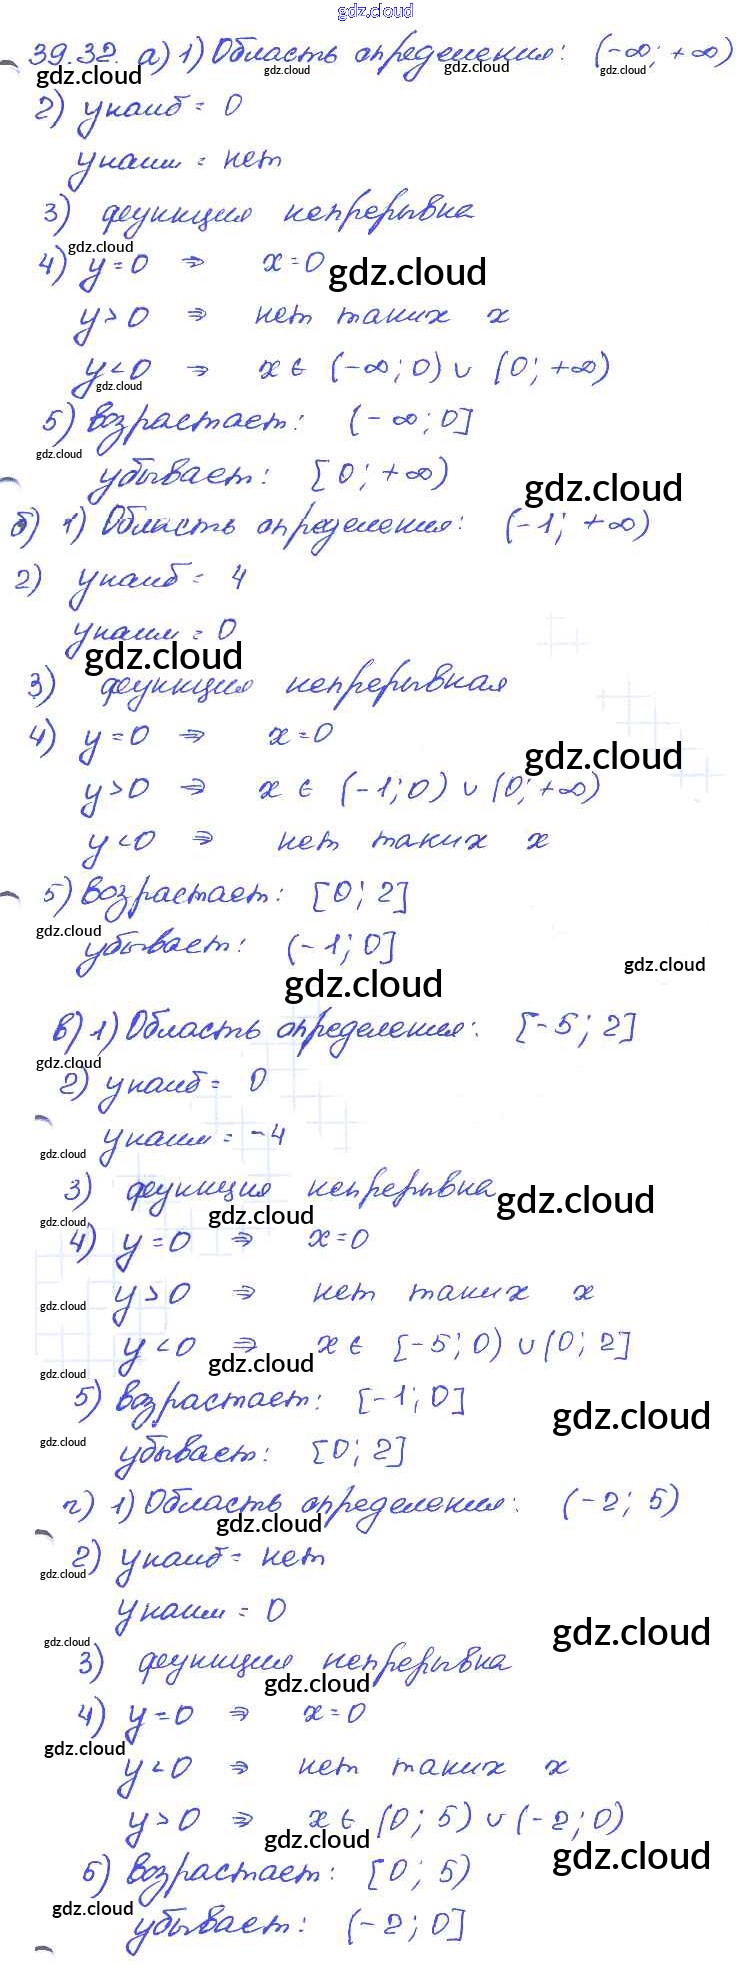 gdz.cloud
39.32. а) 1) Область определения: (-∞; +∞)
gdz.cloud gdz.cloud gdz.cloud gdz.cloud
2) yнаиб = 0
yнаим = нет
3) функция непрерывна
gdz.cloud
4) y=0 ⇒ x=0 gdz.cloud
y>0 ⇒ нет таких x
y<0 ⇒ x ∈ (-∞; 0) ∪ (0; +∞)
gdz.cloud
5) возрастает: (-∞; 0]
gdz.cloud
убывает: [0; +∞) gdz.cloud
б) 1) Область определения: (-1; +∞)
2) yнаиб = 4
yнаим = 0
gdz.cloud
3) функция непрерывная
4) y=0 ⇒ x=0
gdz.cloud
y>0 ⇒ x ∈ (-1; 0) ∪ (0; +∞)
y<0 ⇒ нет таких x
5) возрастает: [0; 2]
gdz.cloud
убывает: (-1; 0]
gdz.cloud gdz.cloud
в) 1) Область определения: [-5; 2]
gdz.cloud
2) yнаиб = 0
yнаим = -4
gdz.cloud
3) функция непрерывна gdz.cloud
gdz.cloud gdz.cloud
4) y=0 ⇒ x=0
y>0 ⇒ нет таких x
gdz.cloud
y<0 ⇒ x ∈ [-5; 0) ∪ (0; 2]
gdz.cloud gdz.cloud
5) возрастает: [-1; 0]
gdz.cloud
gdz.cloud убывает: [0; 2]
г) 1) Область определения: (-2; 5)
gdz.cloud
2) yнаиб = нет
gdz.cloud
yнаим = 0
gdz.cloud gdz.cloud
3) функция непрерывна
gdz.cloud
4) y=0 ⇒ x=0
gdz.cloud
y<0 ⇒ нет таких x
y>0 ⇒ x ∈ (0; 5) ∪ (-2; 0)
gdz.cloud gdz.cloud
5) возрастает: [0; 5)
gdz.cloud
убывает: (-2; 0]